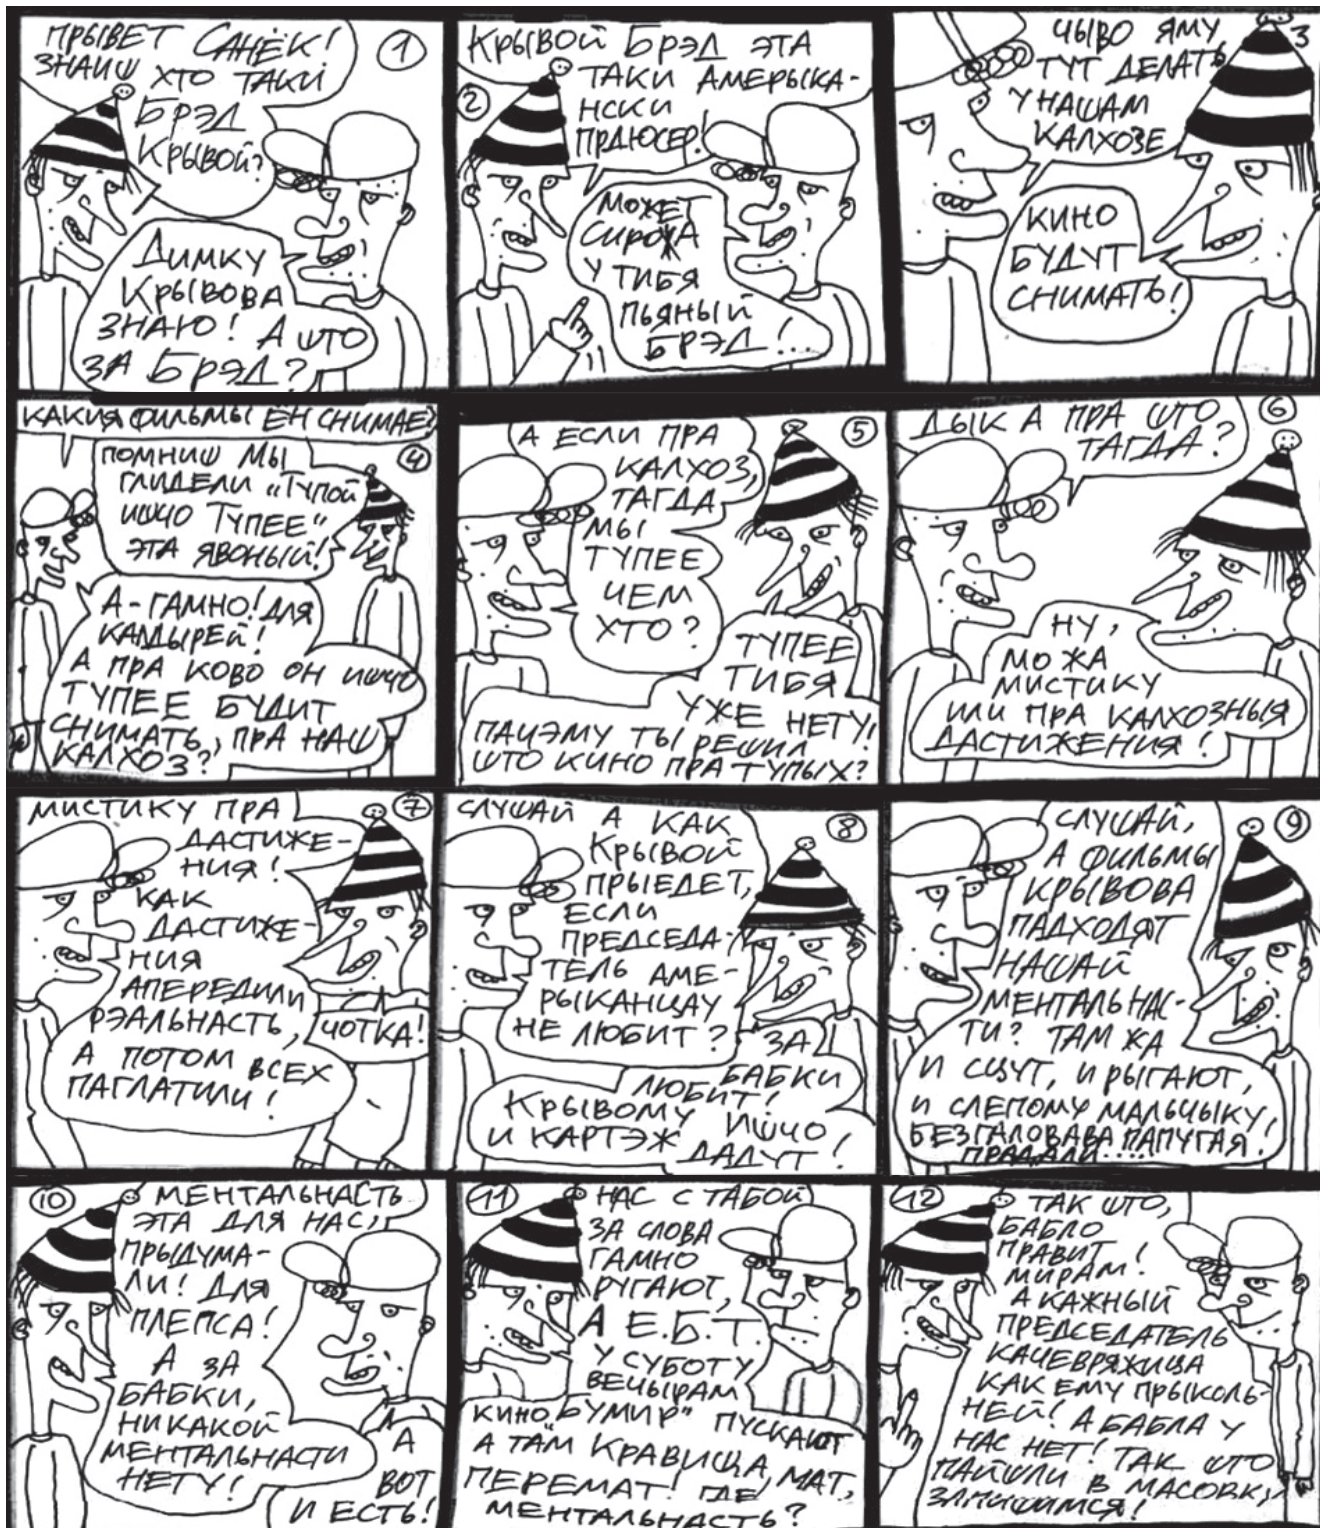 ПРЫВЕТ САНЁК!
ЗНАИШ ХТО ТАКИ
БРЭД
КРЫВОЙ?
1
ДИМКУ
КРЫВОВА
ЗНАЮ! А ШТО
ЗА БРЭД?
КРЫВОЙ БРЭД ЭТА
ТАКИ АМЕРЫКА-
НСКИ
ПРДЮСЕР!
2
МОЖЕТ
СИРОЖА
У ТИБЯ
ПЬЯНЫЙ
БРЭД!..
ЧЫВО ЯМУ
ТУТ ДЕЛАТЬ
У НАШАМ
КАЛХОЗЕ
3
КИНО
БУДУТ
СНИМАТЬ!
КАКИЯ ФИЛЬМЫ ЁН СНИМАЕ?
4
ПОМНИШ МЫ
ГЛИДЕЛИ „ТУПОЙ
ИШЧО ТУПЕЕ"
ЭТА ЯВОНЫЙ!
А-ГАМНО! ДЛЯ
КАЛДЫРЕЙ!
А ПРА КОВО ОН ИШЧО
ТУПЕЕ БУДИТ
СНИМАТЬ, ПРА НАШ
КАЛХОЗ?
А ЕСЛИ ПРА
КАЛХОЗ,
ТАГДА
МЫ
ТУПЕЕ
ЧЕМ
ХТО?
5
ТУПЕЕ
ТИБЯ
УЖЕ НЕТУ!
ПАЧЭМУ ТЫ РЕШИЛ
ШТО КИНО ПРА ТУПЫХ?
ДЫК А ПРА ШТО
ТАГДА?
6
НУ,
МОЖА
МИСТИКУ
ИЛИ ПРА КАЛХОЗНЫЯ
ДАСТИЖЕНИЯ!
МИСТИКУ ПРА
ДАСТИЖЕ-
НИЯ!
КАК
ДАСТИЖЕ-
НИЯ
АПЕРЕДИЛИ
РЭАЛЬНАСТЬ,
А ПОТОМ ВСЕХ
ПАГЛАТИЛИ!
7
ЧОТКА!
СЛУШАЙ А КАК
КРЫВОЙ
ПРЫЕДЕТ,
ЕСЛИ
ПРЕДСЕДА-
ТЕЛЬ АМЕ-
РЫКАНЦАУ
НЕ ЛЮБИТ?
8
ЗА
БАБКИ
ЛЮБИТ!
КРЫВОМУ ИШЧО
И КАРТЭЖ ДАДУТ!
СЛУШАЙ,
А ФИЛЬМЫ
КРЫВОВА
ПАДХОДЯТ
НАШАЙ
МЕНТАЛЬНАС-
ТИ? ТАМ ЖА
И СЦУТ, И РЫГАЮТ,
И СЛЕПОМУ МАЛЬЧЫКУ,
БЕЗГАЛОВАВА ПАПУГАЯ
ПРАДАЛИ....
9
10
МЕНТАЛЬНАСТЬ
ЭТА ДЛЯ НАС,
ПРЫДУМА-
ЛИ! ДЛЯ
ПЛЕПСА!
А ЗА
БАБКИ,
НИКАКОЙ
МЕНТАЛЬНАСТИ
НЕТУ!
А
ВОТ
И ЕСТЬ!
11
НАС С ТАБОЙ
ЗА СЛОВА
ГАМНО
РУГАЮТ,
А Е.Б.Т.
У СУБОТУ
ВЕЧЫРАМ
КИНО „БУМИР" ПУСКАЮТ
А ТАМ КРАВИЩА, МАТ,
ПЕРЕМАТ! ГДЕ
МЕНТАЛЬНАСТЬ?
12
ТАК ШТО,
БАБЛО
ПРАВИТ
МИРАМ!
А КАЖНЫЙ
ПРЕДСЕДАТЕЛЬ
КАЧЕВРЯЖИЦА
КАК ЕМУ ПРЫКОЛЬ-
НЕЙ! А БАБЛА У
НАС НЕТ! ТАК ШТО
ПАЙШЛИ В МАСОВКУ
ЗАПИШИМСЯ!